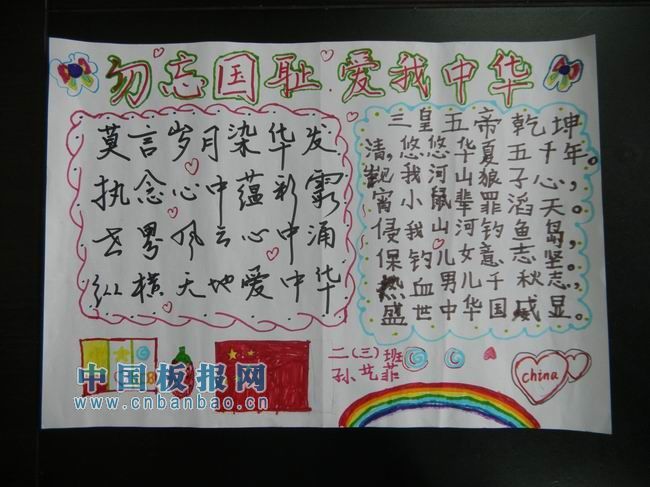 勿忘国耻 爱我中华
莫言岁月染华发
执念心中蕴彩
世界风云心中涌
纵横天地爱中华
三皇五帝乾坤
清，悠悠华夏五千年。
我河山狼子心，
宵小鼠辈罪滔天。
侵我山河钓鱼岛。
保钓儿女意志坚。
热血男儿千秋志，
盛世中华国威显。
二(三)班
孙艺菲
china
中国板报网
www.cnbanbao.cn